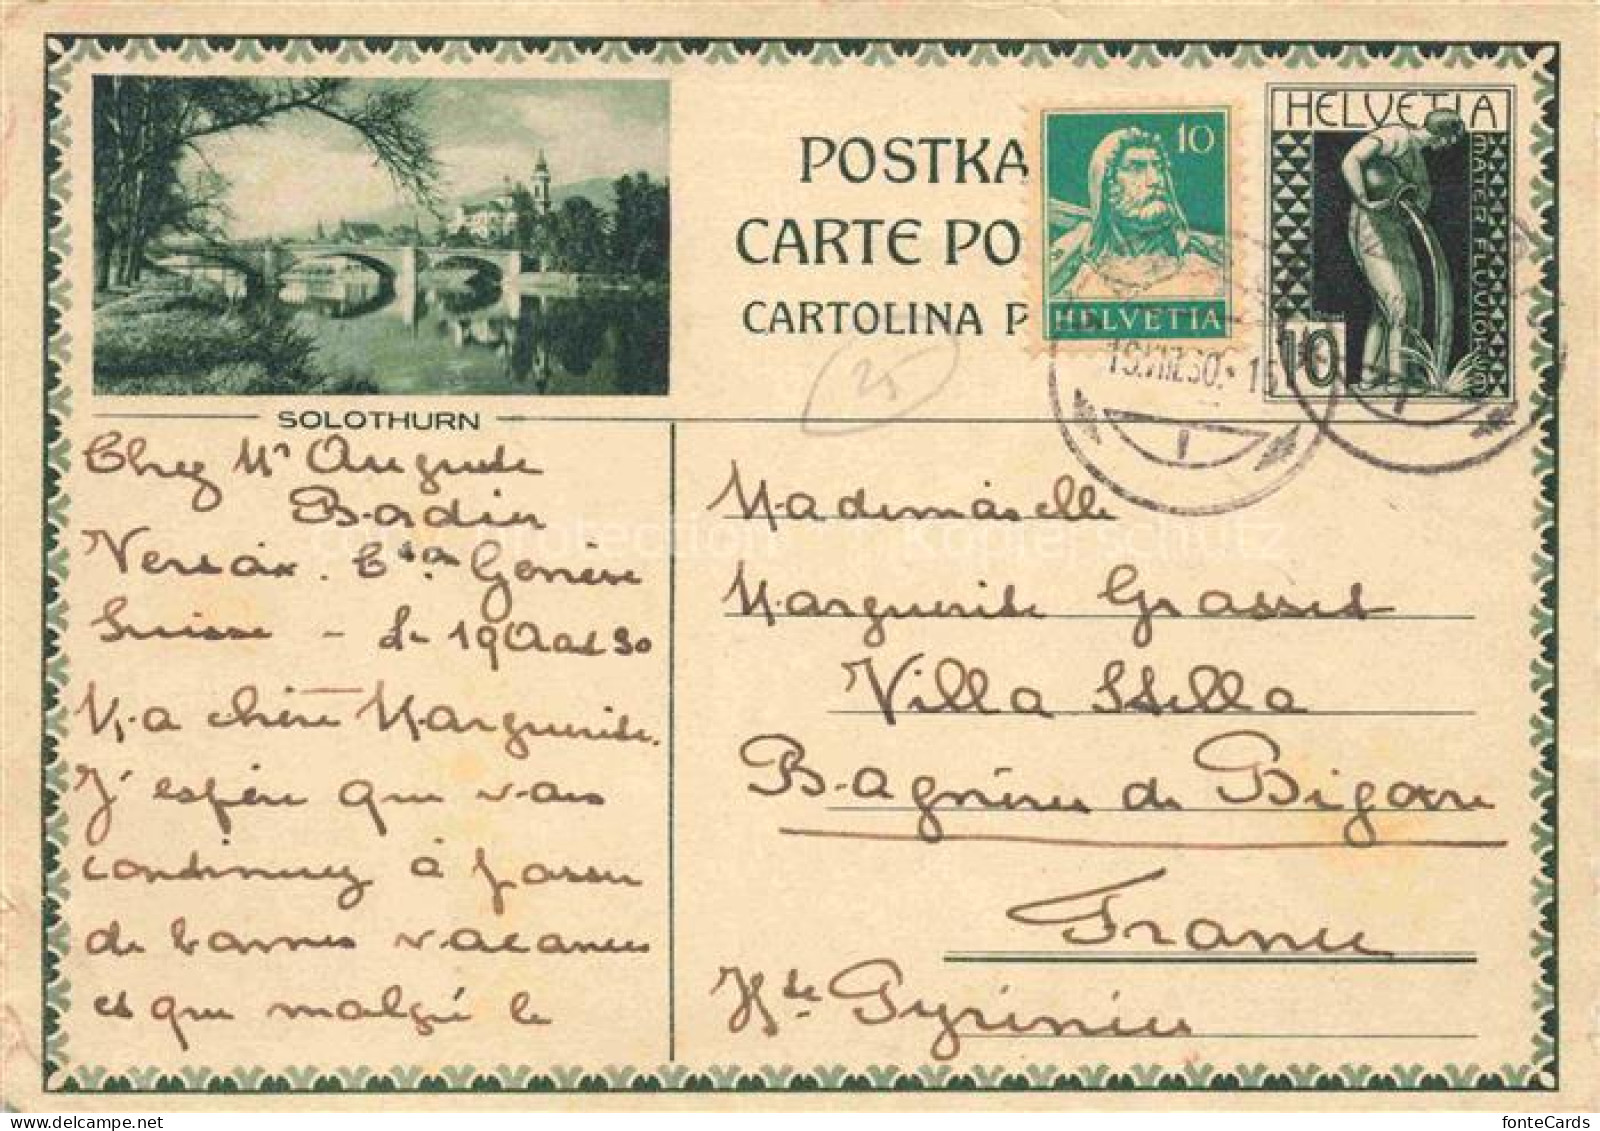 POSTKA
CARTE PO
CARTOLINA P
10
HELVETIA
HELVETIA
MATER FLUVIORUM
10
25
19.VIII.30.
1
SOLOTHURN
Chez Mr Auguste
Badier
Versoix. Genève
Suisse - le 19 Août 30
Ma chère Marguerite.
J'espère que vous
continuez à passer
de bonnes vacances
et que malgré le
Mademoiselle
Marguerite Grasset
Villa Stella
Bagnères de Bigorre
France
Htes Pyrénées
protection Kopierschutz
fonteCards